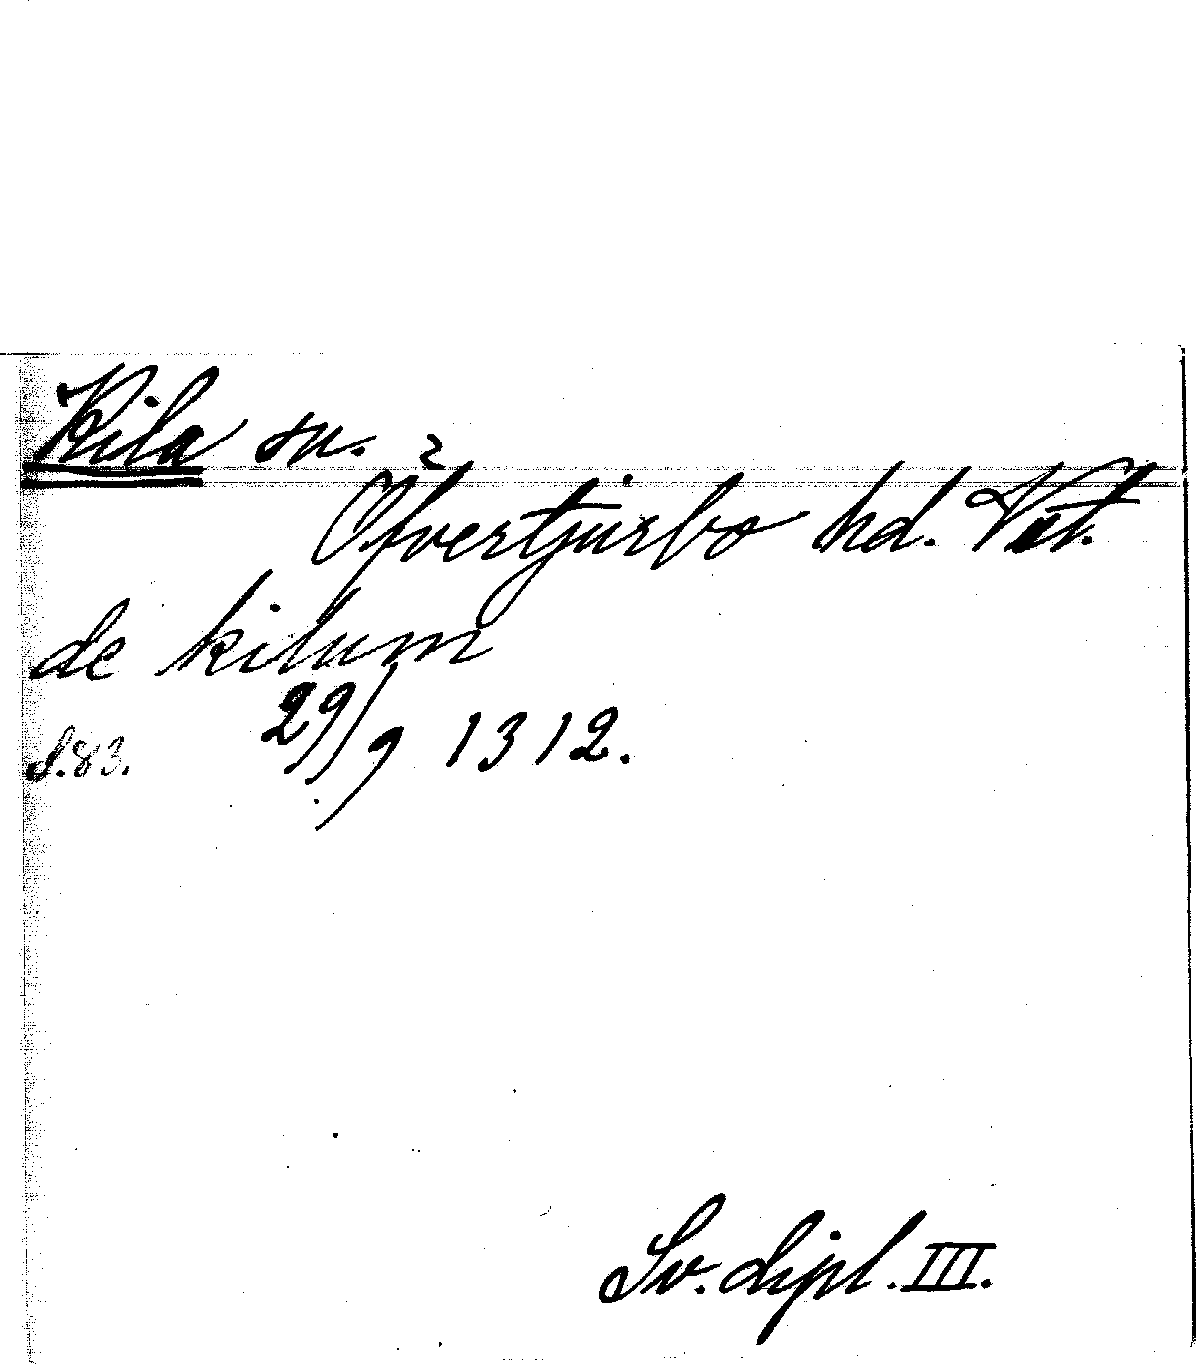 Kila sn.
Öfvertjurbo hd. Vst.
de kilum
S. 83. 29/9 1312.
Sv. dipl. III.